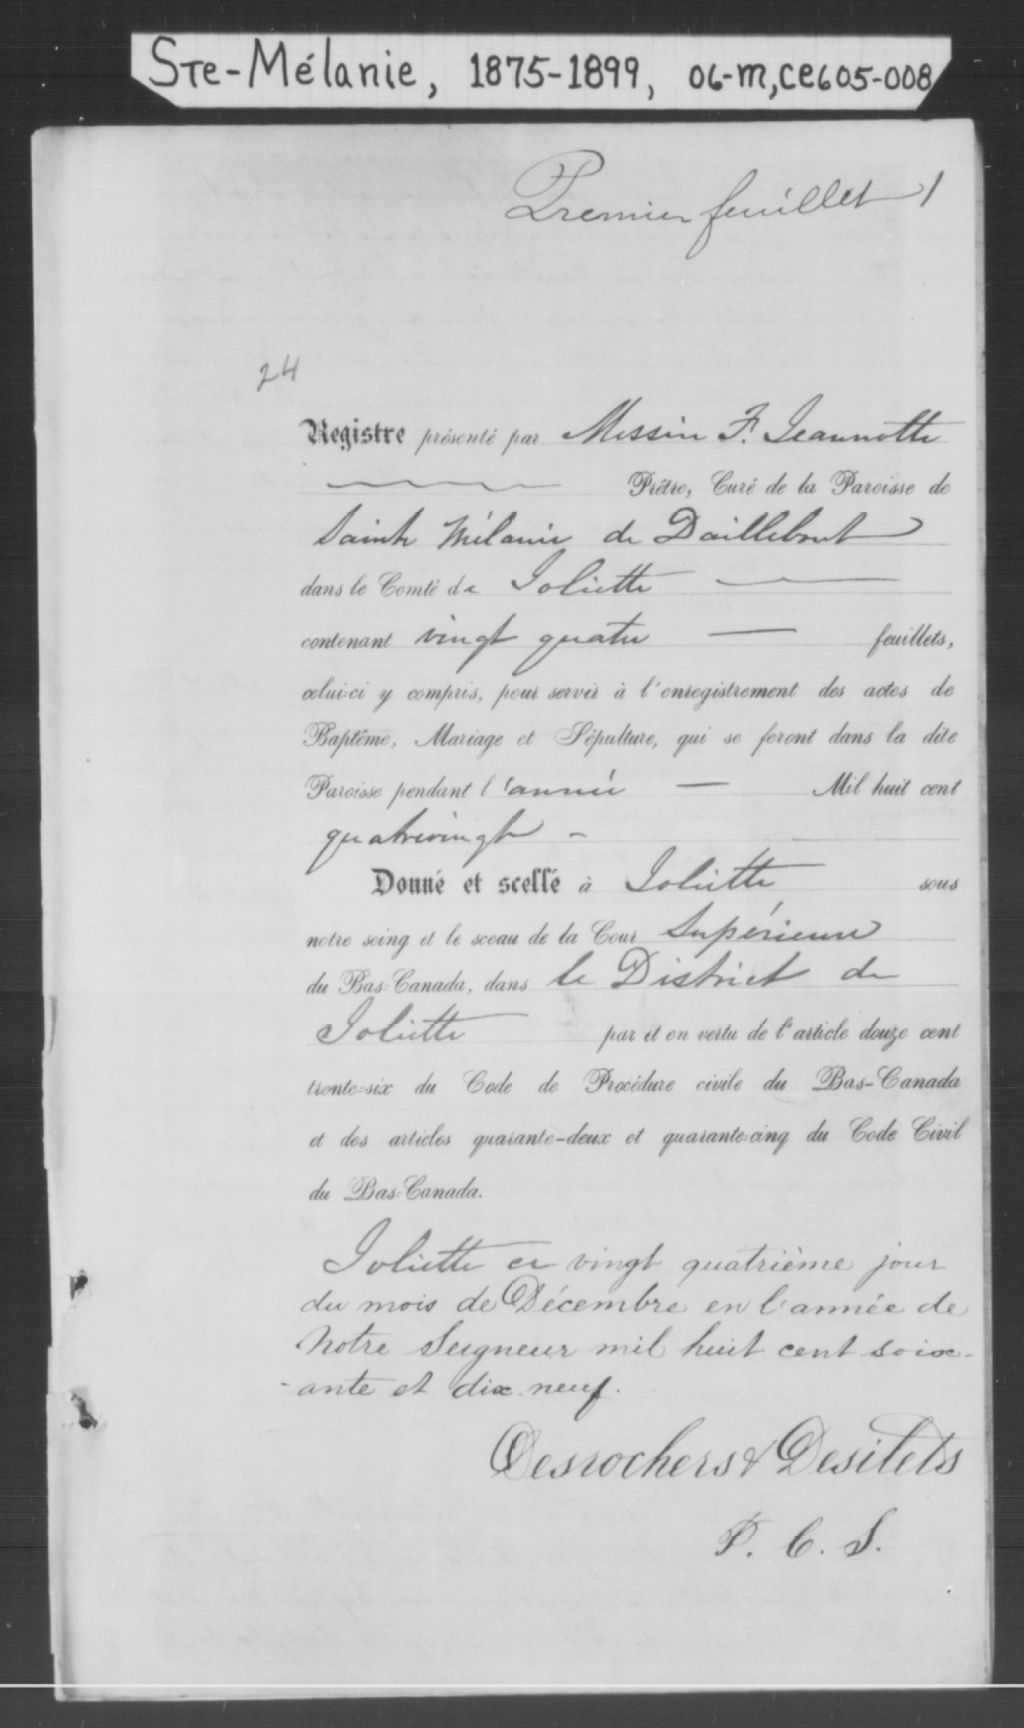 Ste-Mélanie, 1875-1899, 06-m,ce605-008
Premier feuillet 1
24
Registre présenté par Messire F. Jeannotte
Prêtre, Curé de la Paroisse de
Sainte Mélanie de Daillebout
dans le Comté de Joliette
contenant vingt quatre feuillets,
celui-ci y compris, pour servir à l'enregistrement des actes de
Baptême, Mariage et Sépulture, qui se feront dans la dite
Paroisse pendant l'année Mil huit cent
quatrevingt
Donné et scellé à Joliette sous
notre seing et le sceau de la Cour Supérieure
du Bas-Canada, dans le District de
Joliette par et en vertu de l'article douze cent
trente-six du Code de Procédure civile du Bas-Canada
et des articles quarante-deux et quarante-cinq du Code Civil
du Bas-Canada.
Joliette ce vingt quatrième jour
du mois de Décembre en l'année de
Notre Seigneur mil huit cent soix-
-ante et dix neuf.
Desrochers & Desilets
P. C. S.